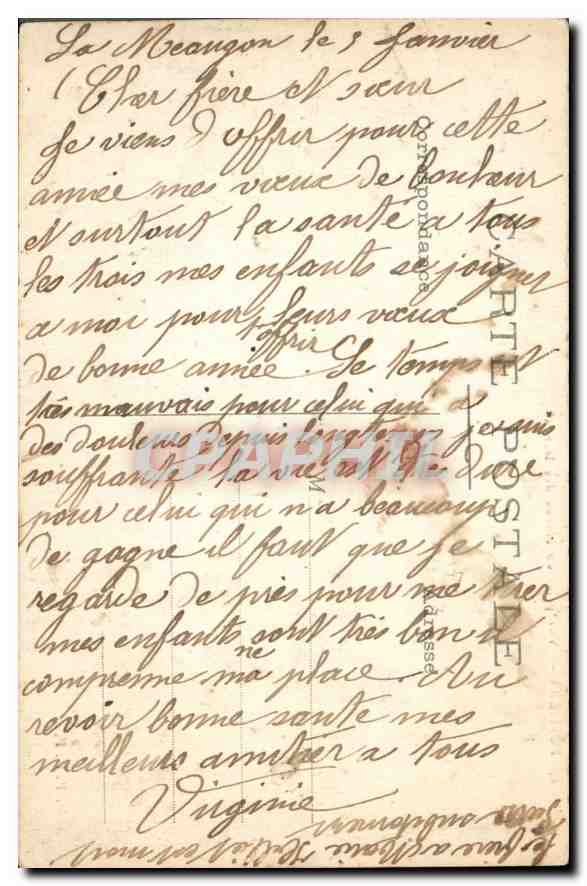 La Meaugon le 5 Janvier
Cher frère et sœur
Je viens d offrir pour cette
année mes vœux de bonheur
et surtout la santé a tous
les trois mes enfants se joignes
a moi pour t offrir leurs vœux
de bonne année. Le temps et
très mauvais pour celui qui a
des douleurs depuis longtemps je suis
souffrante la vie est dure
pour celui qui n a beaucoup
de gagne il faut que je
regarde de près pour me tirer
mes enfants sont très bon il
comprenne ma place. Au
revoir bonne sante mes
meilleurs amitier a tous
Virginie
CARTE POSTALE
Correspondance
Adresse
M
CPAPHIL